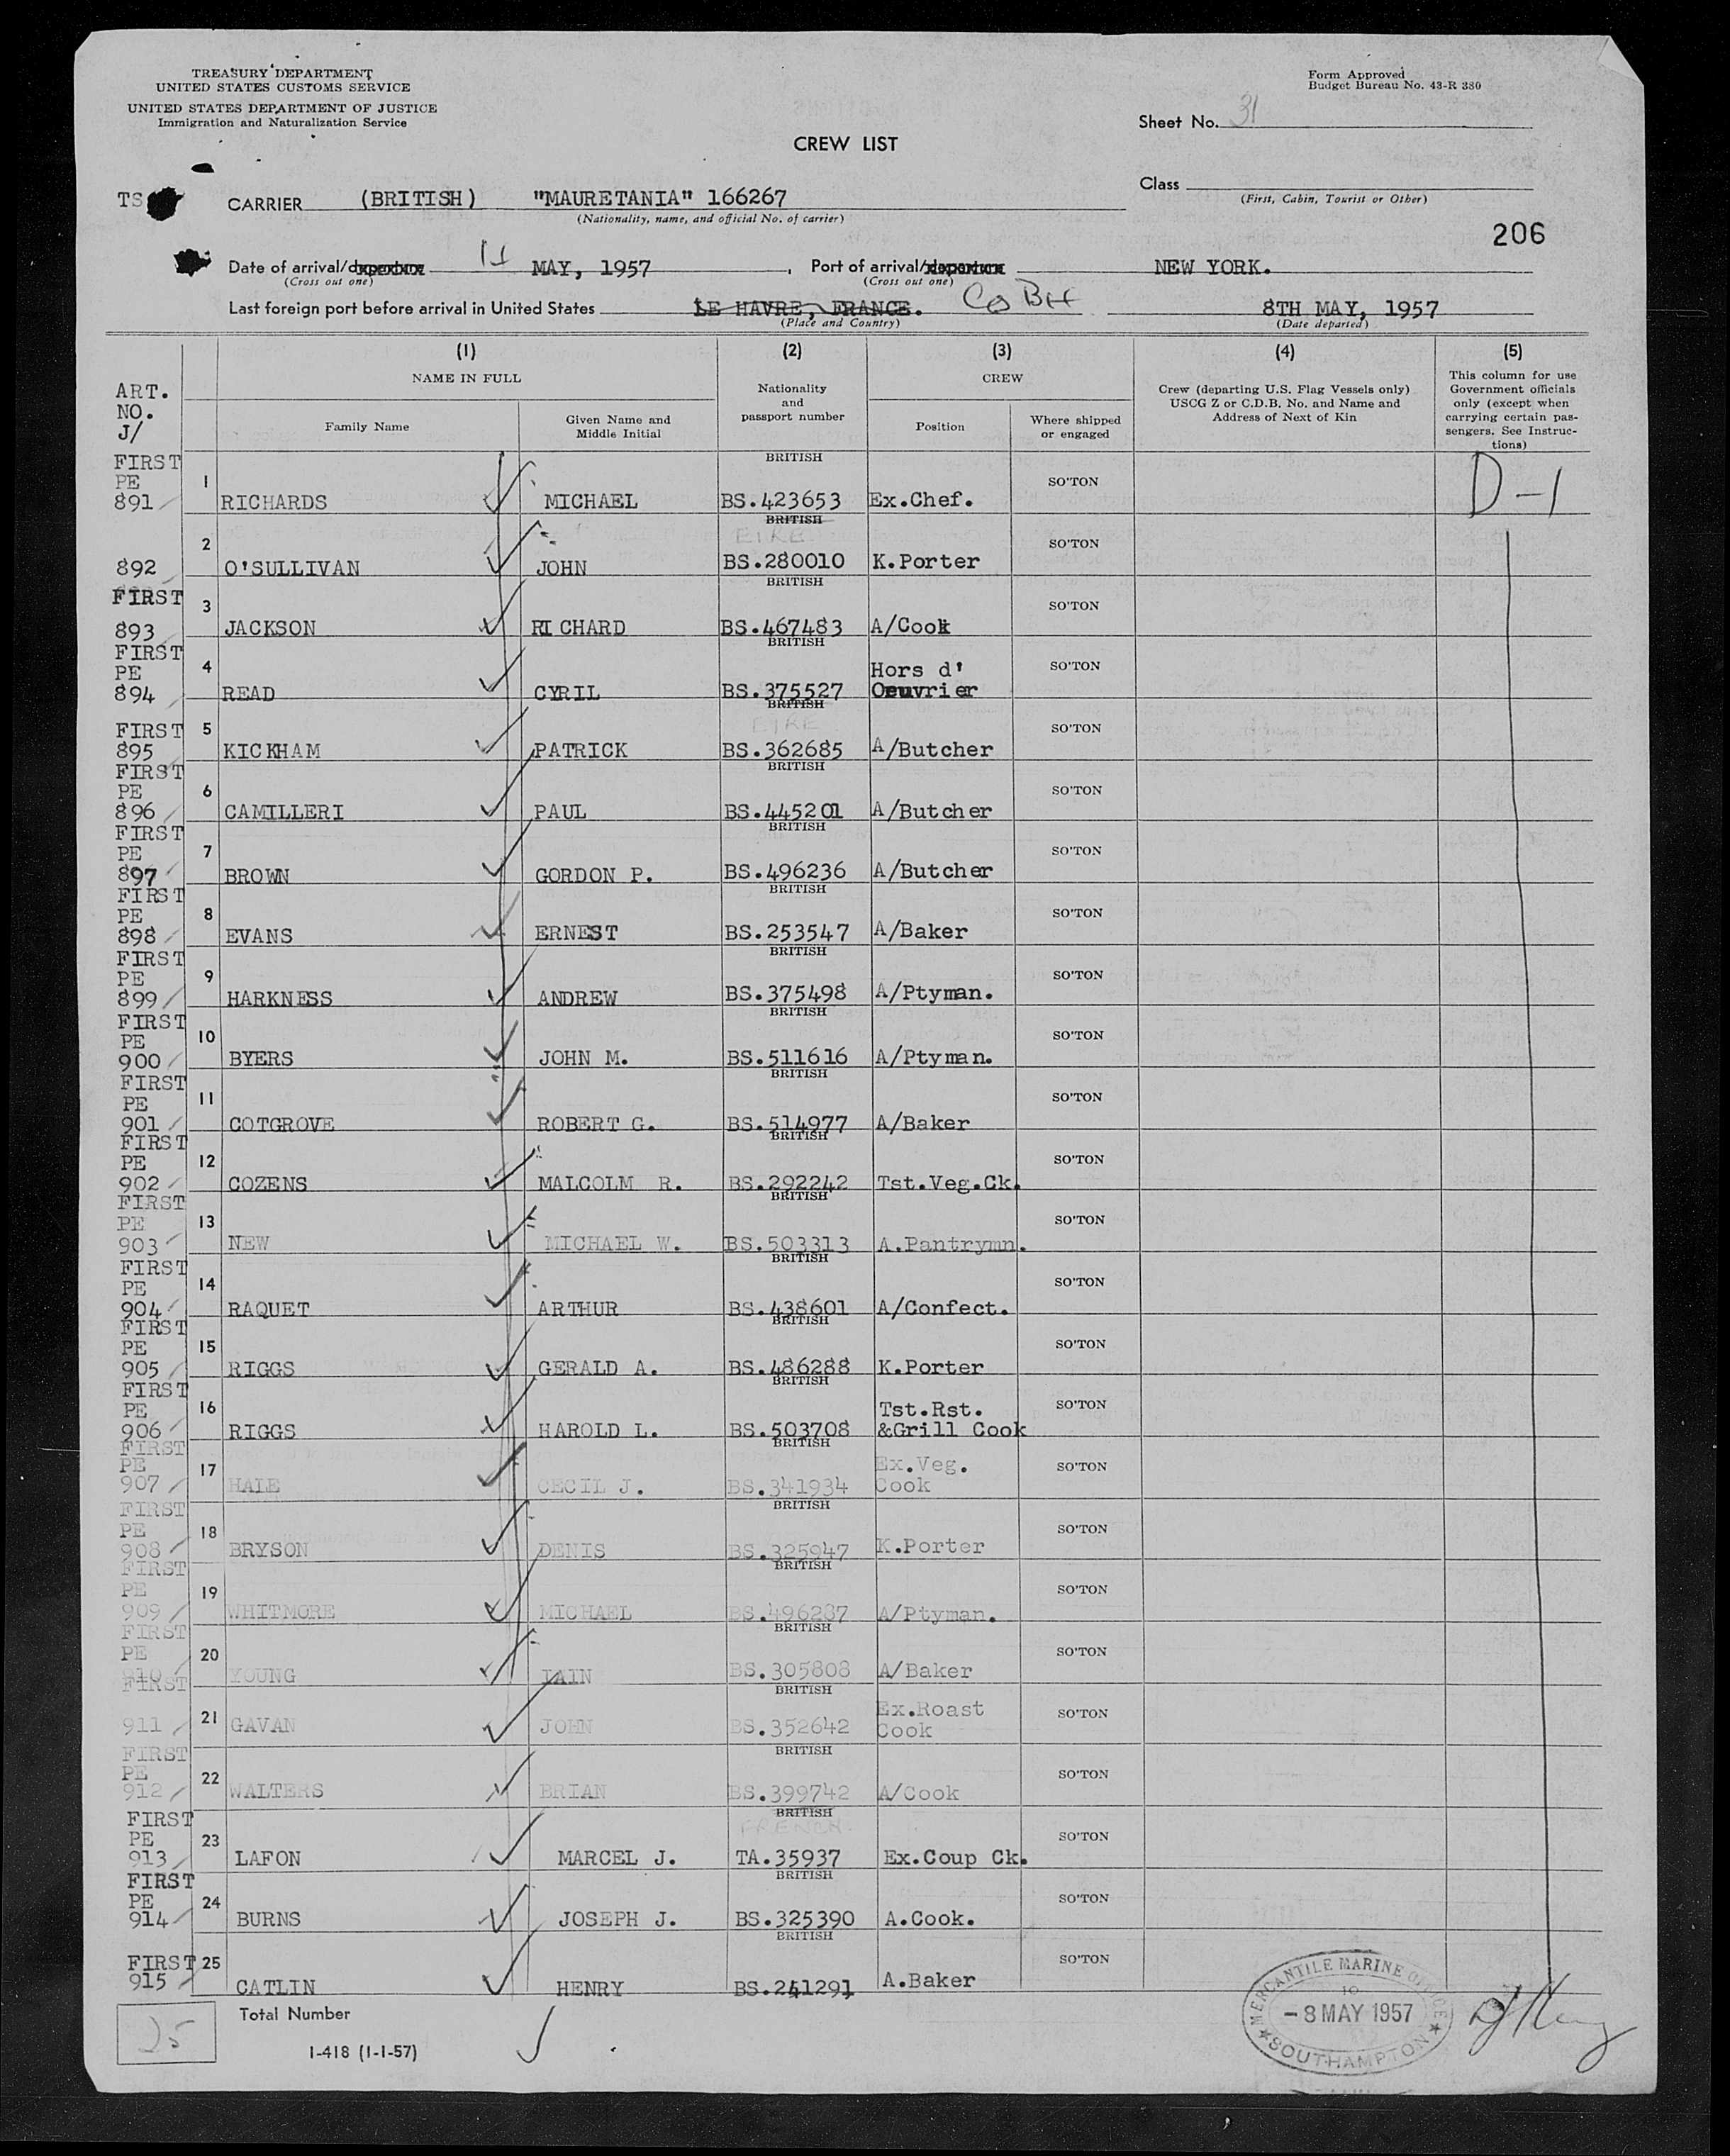 TREASURY DEPARTMENT
UNITED STATES CUSTOMS SERVICE
UNITED STATES DEPARTMENT OF JUSTICE
Immigration and Naturalization Service
Form Approved
Budget Bureau No. 43-R 380
Sheet No. 31
CREW LIST
Class
(First, Cabin, Tourist or Other)
TS
CARRIER (BRITISH) "MAURETANIA" 166267
(Nationality, name, and official No. of carrier)
206
Date of arrival/departure 14 MAY, 1957, Port of arrival/departure NEW YORK.
(Cross out one) (Cross out one)
Last foreign port before arrival in United States LE HAVRE, FRANCE. CoBH 8TH MAY, 1957
(Place and Country) (Date departed)
ART. NO. J/
(1) (2) (3) (4) (5)
NAME IN FULL
Family Name
Given Name and Middle Initial
Nationality and passport number
CREW
Position
Where shipped or engaged
Crew (departing U.S. Flag Vessels only) USCG Z or C.D.B. No. and Name and Address of Next of Kin
This column for use Government officials only (except when carrying certain passengers. See Instructions)
FIRST PE 891 1 RICHARDS MICHAEL BRITISH BS.423653 Ex.Chef. SO'TON D-1
892 2 O'SULLIVAN JOHN BRITISH EIRE BS.280010 K.Porter SO'TON
FIRST 893 3 JACKSON RICHARD BRITISH BS.467483 A/Cook SO'TON
FIRST PE 894 4 READ CYRIL BRITISH BS.375527 Hors d' Oeuvrier SO'TON
FIRST 895 5 KICKHAM PATRICK BRITISH EIRE BS.362685 A/Butcher SO'TON
FIRST PE 896 6 CAMILLERI PAUL BRITISH BS.445201 A/Butcher SO'TON
FIRST PE 897 7 BROWN GORDON P. BRITISH BS.496236 A/Butcher SO'TON
FIRST PE 898 8 EVANS ERNEST BRITISH BS.253547 A/Baker SO'TON
FIRST PE 899 9 HARKNESS ANDREW BRITISH BS.375498 A/Ptyman. SO'TON
FIRST PE 900 10 BYERS JOHN M. BRITISH BS.511616 A/Ptyman. SO'TON
FIRST PE 901 11 COTGROVE ROBERT G. BRITISH BS.514977 A/Baker SO'TON
FIRST PE 902 12 COZENS MALCOLM R. BRITISH BS.292242 Tst.Veg.Ck. SO'TON
FIRST PE 903 13 NEW MICHAEL W. BRITISH BS.503313 A.Pantrymn. SO'TON
FIRST PE 904 14 RAQUET ARTHUR BRITISH BS.438601 A/Confect. SO'TON
FIRST PE 905 15 RIGGS GERALD A. BRITISH BS.486288 K.Porter SO'TON
FIRST PE 906 16 RIGGS HAROLD L. BRITISH BS.503708 Tst.Rst. &Grill Cook SO'TON
FIRST PE 907 17 HALE CECIL J. BRITISH BS.341934 Ex.Veg. Cook SO'TON
FIRST PE 908 18 BRYSON DENIS BRITISH BS.325947 K.Porter SO'TON
FIRST PE 909 19 WHITMORE MICHAEL BRITISH BS.496287 A/Ptyman. SO'TON
FIRST PE 910 20 YOUNG IAIN BRITISH BS.305808 A/Baker SO'TON
FIRST 911 21 GAVAN JOHN BRITISH BS.352642 Ex.Roast Cook SO'TON
FIRST PE 912 22 WALTERS BRIAN BRITISH BS.399742 A/Cook SO'TON
FIRST PE 913 23 LAFON MARCEL J. BRITISH FRENCH TA.35937 Ex.Coup Ck. SO'TON
FIRST PE 914 24 BURNS JOSEPH J. BRITISH BS.325390 A.Cook. SO'TON
FIRST 915 25 CATLIN HENRY BRITISH BS.241291 A.Baker SO'TON
25 Total Number
I-418 (1-1-57)
MERCANTILE MARINE OFFICE
10
-8 MAY 1957
SOUTHAMPTON